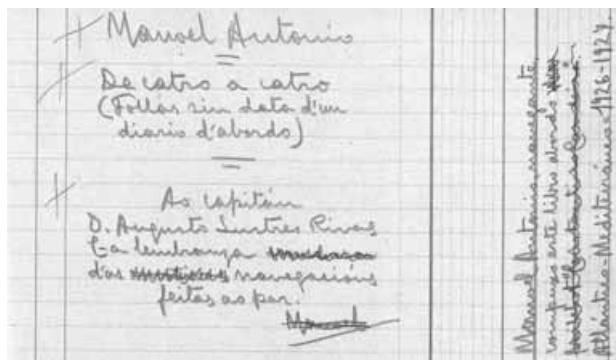 Manoel Antonio
De catro a catro
(Follas sin data d'un
diario d'abordo)
Ao capitán
D. Augusto Lustres Rivas
C-a lembranza
d'as navegacións
feitas ao par.
Manoel
Manoel Antonio, navegante,
compuxo este libro abordo
Atlántico-Mediterráneo-1926-1927